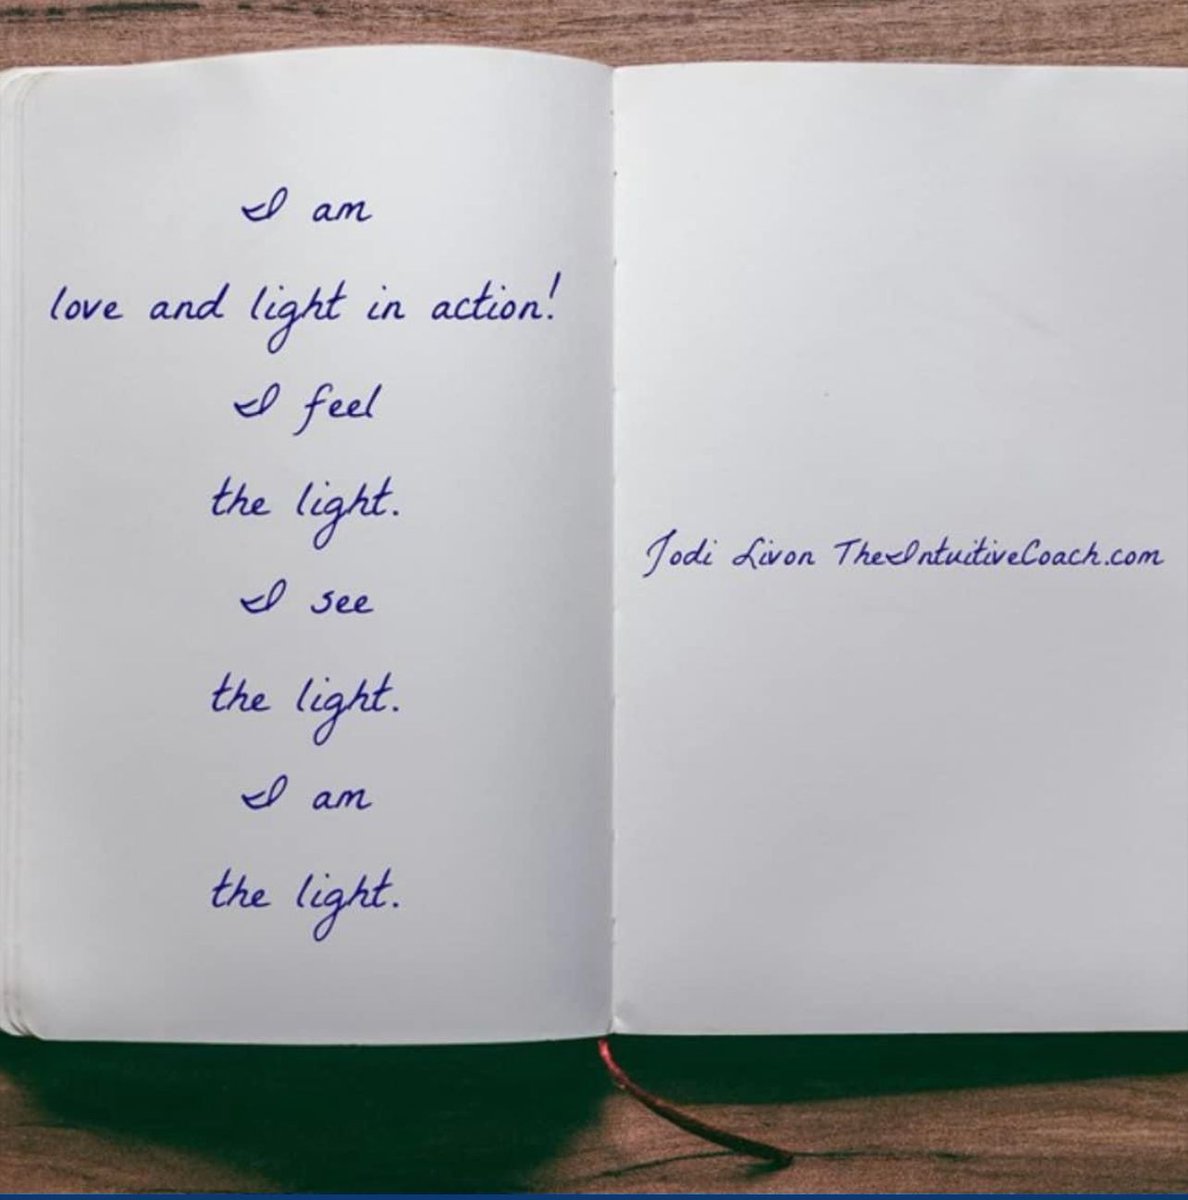 I am
love and light in action!
I feel
the light.
I see
the light.
I am
the light.
Jodi Livon TheIntuitiveCoach.com